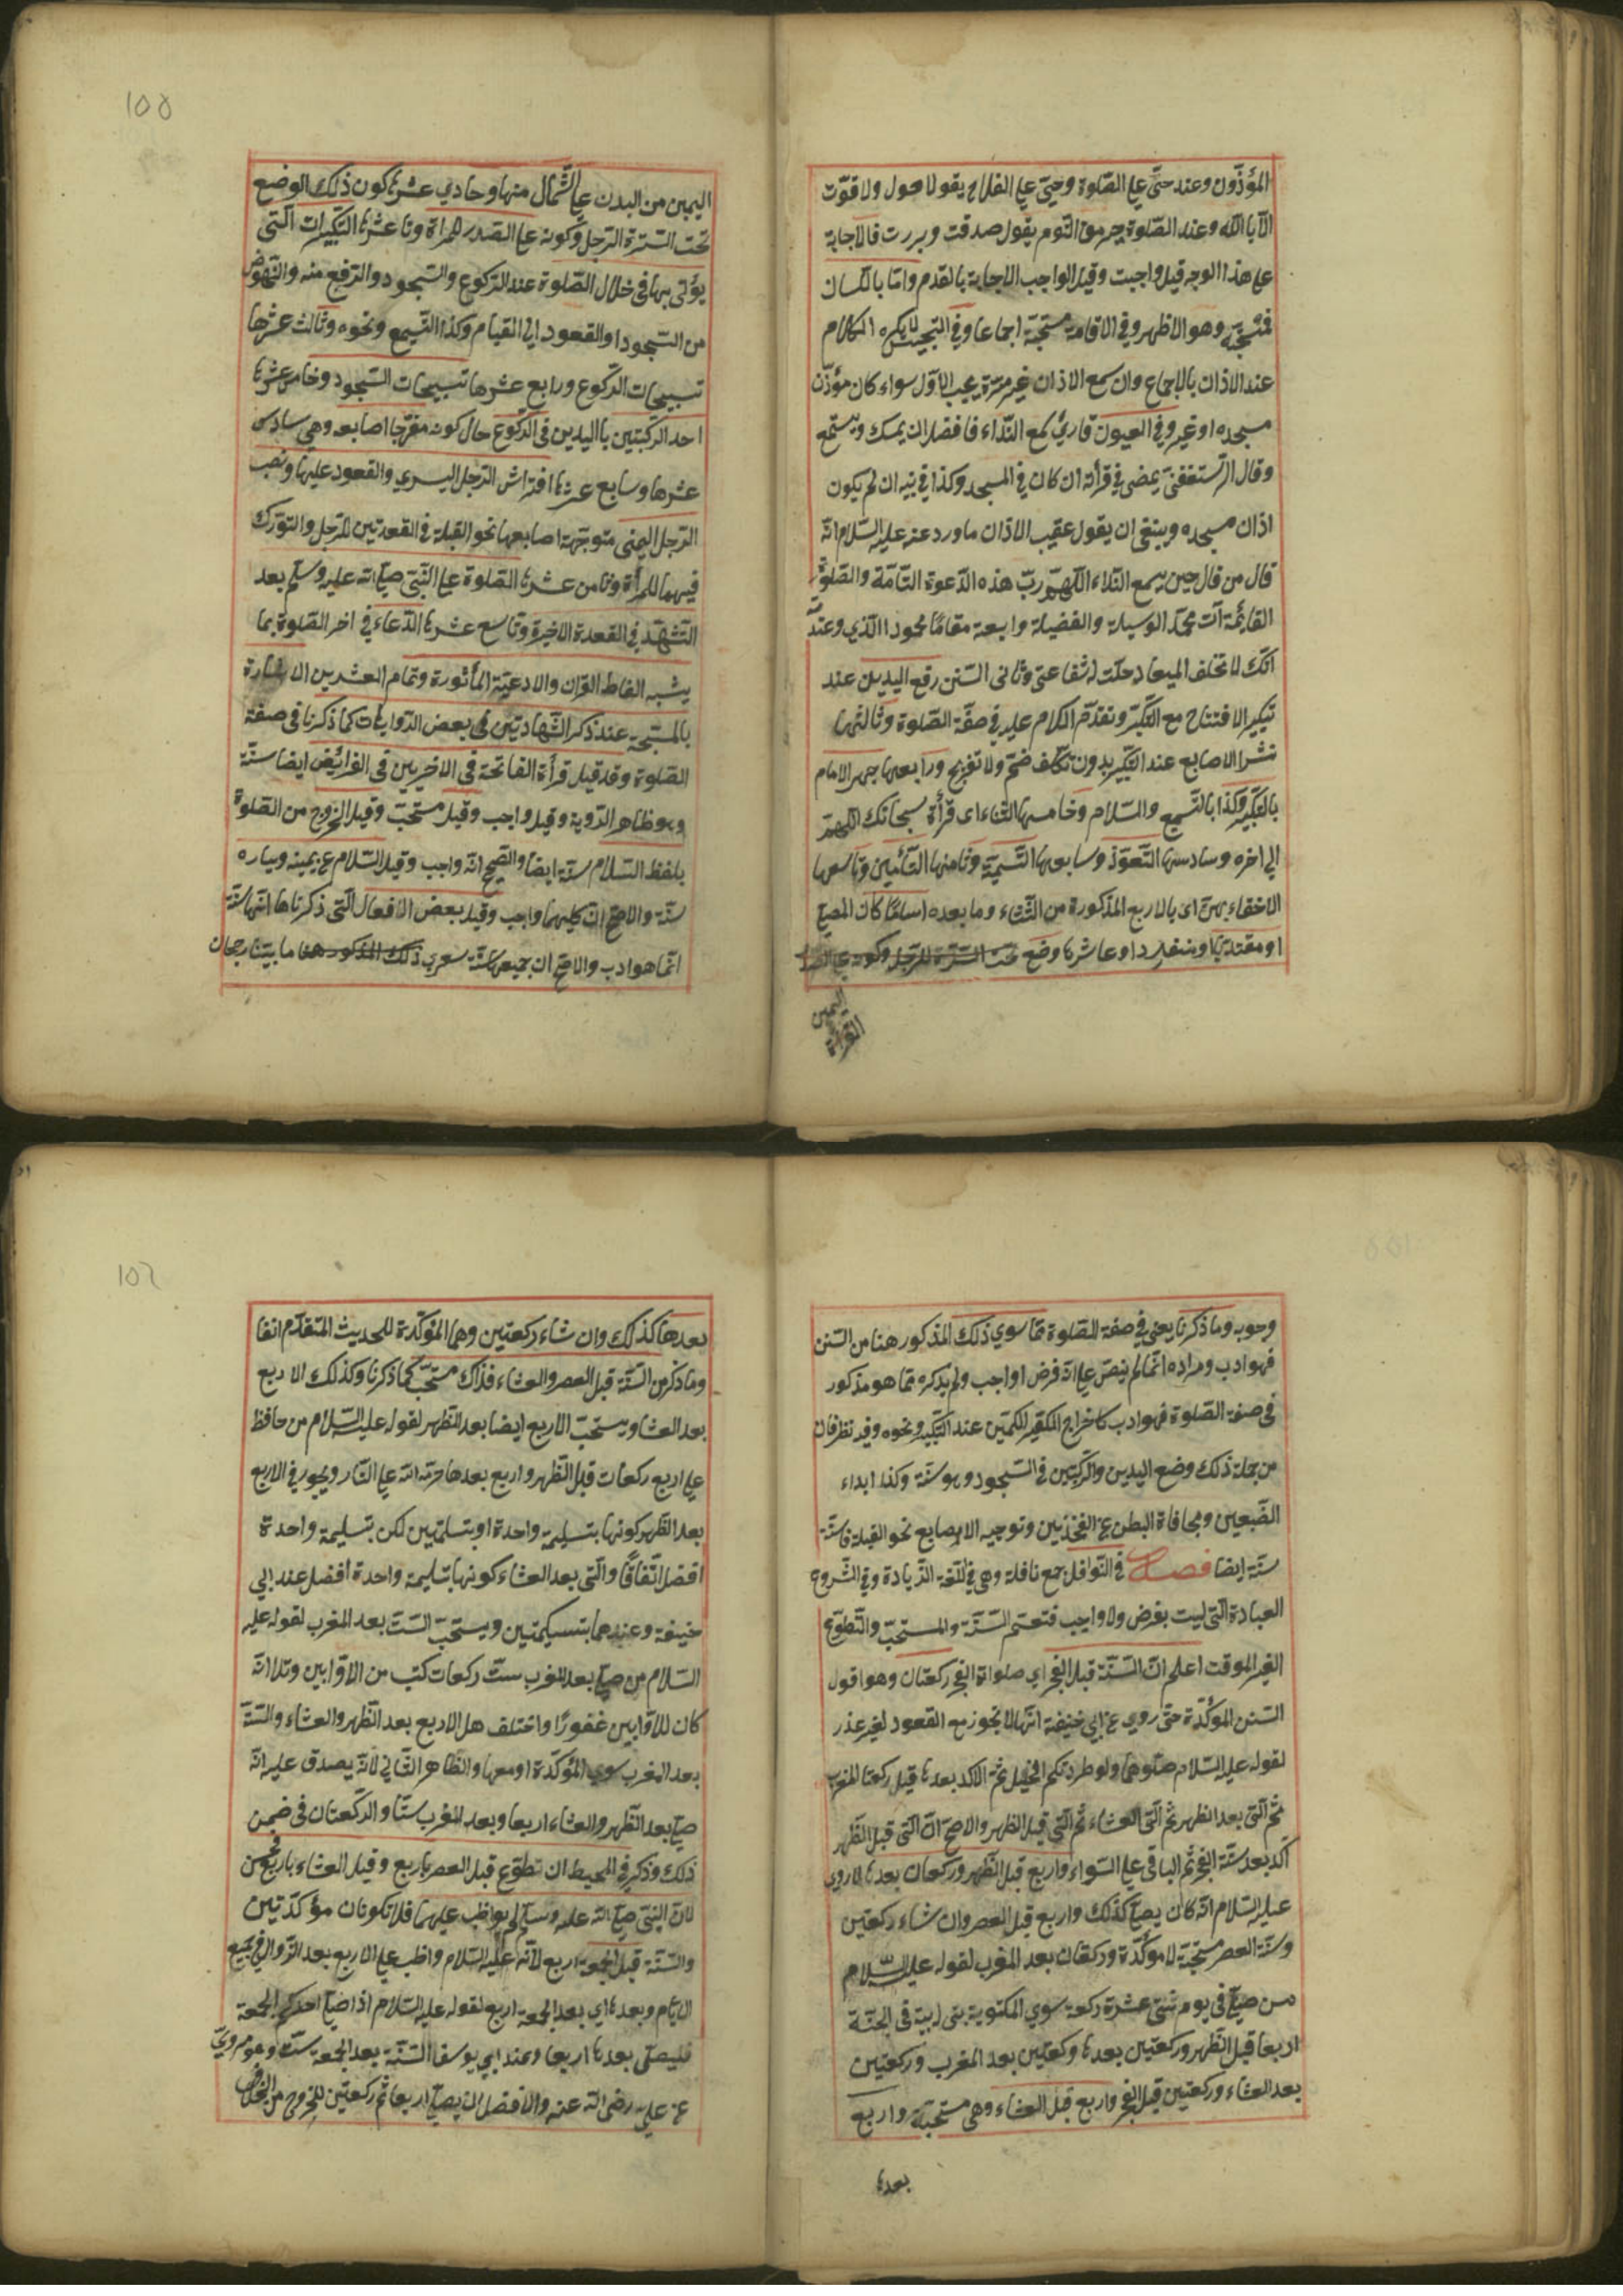 المؤذّن وعند حيّ على الصّلوة وحيّ على الفلاح يقول لا حول ولا قوّة
الّا باللّه وعند الصّلوة خير من النّوم يقول صدقت وبررت فالاجابة
على هذا الوجه قيل واجبة وقيل الواجب الاجابة بالقدم وامّا باللّسان
فمستحبّة وهو الاظهر وفي الاقامة مستحبّة اجماعا وفي التجنيس لا يكره الكلام
عند الاذان بالاجماع وان سمع الاذان غير مرّة يجيب الاوّل سواء كان مؤذّن
مسجده او غيره وفي العيون قارئ سمع النّداء فافضل ان يمسك ويستمع
وقال الرّستغفنيّ يمضى في قرأته ان كان في المسجد وكذا في بيته ان لم يكون
اذان مسجده وينبغى ان يقول عقيب الاذان ما ورد عنه عليه السّلام انّه
قال من قال حين يسمع النّداء اللّهمّ ربّ هذه الدّعوة التّامّة والصّلوة
القائمة آت محمّد الوسيلة والفضيلة وابعثه مقامًا محمودا الّذي وعدتّه
انّك لا تخلف الميعاد حلّت له شفاعتى وثانى السّنن رفع اليدين عند
تكبير الافتتاح مع التّكبير وتقدّم الكلام عليه في صفة الصّلوة وثالثها
نشر الاصابع عند التّكبير بدون تكلّف ضمّ ولا تفريج ورابعها جهر الامام
بالتّكبير وكذا بالتّسميع والسّلام وخامسها الثّناء اى قرأة سبحانك اللّهمّ
الى اخره وسادسها التّعوّذ وسابعها التّسميّة وثامنها التّأمين وتاسعها
الاخفاء بهنّ اى بالاربع المذكورة من الثّناء وما بعده امامًا كان المصلّي
او مقتديا او منفردا وعاشرها وضع تحت السّرّة للرّجل وكونه على الصدر
اليمين
القرأة
100
اليمين من اليدين على الشّمال منها وحادي عشرها كون ذلك الوضع
تحت السّرّة الرّجل وكونه على الصّدر للمرأة وثانى عشرها التّكبيرات الّتى
يؤتى بها في خلال الصّلوة عند الرّكوع والسّجود والرّفع منه والنّهوض
من السّجود او القعود الى القيام وكذا التّسميع ونحوه وثالث عشرها
تسبيحات الرّكوع ورابع عشرها تسبيحات السّجود وخامس عشرها
اخذ الرّكبتين باليدين في الرّكوع حال كونه مفرّجا اصابعه وهي سادس
عشرها وسابع عشرها افتراش الرّجل اليسرى والقعود عليها ونصب
الرّجل اليمنى متوجّهة اصابعها نحو القبلة في القعدتين للرّجل والتّورّك
فيهما للمرأة وثامن عشرها الصّلوة على النّبىّ صلّى اللّه عليه وسلّم بعد
التّشهّد في القعدة الاخيرة وتاسع عشرها الدّعاء في اخر الصّلوة بما
يشبه الفاظ القرآن والادعيّة المأثورة وتمام العشرين الاشارة
بالمسبّحة عند ذكر الشّهادتين في بعض الرّوايات كما ذكرنا في صفة
الصّلوة وقد قيل قرأة الفاتحة في الاخريين في الفرائض ايضا سنّة
وهو ظاهر الرّوية وقيل واجب وقيل مستحبّ وقيل الخروج من الصّلوة
بلفظ السّلام سنّة ايضا والصّحيح انّه واجب وقيل السّلام عن يمينه ويساره
سنّة والاصحّ انّ كليهما واجب وقيل بعض الافعال الّتى ذكرناها انّها سنّة
انّما هو ادب والاصحّ ان جميعها سنّة سوى ذلك المذكور هنا ما بيّنا رجحان
وجوبه وما ذكرنا يعنى في صفة الصّلوة ممّا سوى ذلك المذكور هنا من السّنن
فهو ادب ومراده انّما لم ينصّ على انّه فرض او واجب ولم يذكره ممّا هو مذكور
في صفة الصّلوة فهو ادب كاخراج الكفّين للكمّين عند التّكبير ونحوه وفيه نظر فان
من جملة ذلك وضع اليدين والرّكبتين في السّجود وهو سنّة وكذا ابداء
الضّبعين ومجافاة البطن عن الفخذين وتوجيه الاصابع نحو القبلة فانّه
سنّة ايضا فصل في النّوافل جمع نافلة وهي في اللّغة الزّيادة وفي الشّروع
العبادة الّتى ليست بفرض ولا واجب فتعمّ السّنّة والمستحبّ والتّطوّع
الغير الموقت اعلم انّ السّنّة قبل الفجر اى صلواة الفجر ركعتان وهو اقول
السّنن المؤكّدة حتّى روى عن ابي حنيفة انّها لا تجوز مع القعود لغير عذر
لقوله عليه السّلام صلّوهما ولو طردتكم الخيل ثمّ الاكد بعدها قيل ركعتا المغرب
ثمّ الّتى بعد الظهر ثمّ الّتى العشاء ثمّ الّتى قبل الظهر والاصحّ انّ الّتى قبل الظّهر
آكد بعد سنّة الفجر ثمّ الباقى على السّواء واربع قبل الظّهر وركعتان بعدها لما روى
عليه السّلام انّه كان يصلّى كذلك واربع قبل العصر وان شاء ركعتين
وسنّة العصر مستحبّة لا مؤكّدة وركعتان بعد المغرب لقوله عليه السّلام
من صلّى في يوم ثنتى عشرة ركعة سوى المكتوبة بنى له بيت في الجنّة
اربعا قبل الظّهر وركعتين بعدها وركعتين بعد المغرب وركعتين
بعد العشاء وركعتين قبل الفجر واربع قبل العشاء وهى مستحبّة واربع
بعدها
102
بعدها كذلك وان شاء ركعتين وهما المؤكّدة للحديث المتقدّم انفا
وما ذكر من السّنّة قبل العصر والعشاء فذاك مستحبّ كما ذكرنا وكذلك الاربع
بعد العشاء ويستحبّ الاربع ايضا بعد الظّهر لقوله عليه السّلام من حافظ
على اربع ركعات قبل الظّهر واربع بعدها حرّمه اللّه على النّار ويجوز في الاربع
بعد الظّهر كونها بتسليمة واحدة او بتسلمتين لكن بتسليمة واحدة
افضل اتّفاقًا والّتى بعد العشاء كونها بتسليمة واحدة افضل عند ابي
حنيفة وعندهما بتسليمتين ويستحبّ السّتّ بعد المغرب لقوله عليه
السّلام من صلّى بعد المغرب ستّ ركعات كتب من الاوّابين وتلا انّه
كان للاوّابين غفورًا واختلف هل الاربع بعد الظّهر والعشاء والسّتّة
بعد المغرب سوى المؤكّدة او معها والظّاهر الثّانى لانّه يصدق عليه انّه
صلّى بعد الظّهر والعشاء اربعا وبعد المغرب ستّا والرّكعتان في ضمن
ذلك وذكر في المحيط ان تطوّع قبل العصر باربع وقبل العشاء باربع فحسن
لانّ النّبىّ صلّى اللّه عليه وسلّم لم يواظب عليهما فلا تكونان مؤكّدتين
والسّنّة قبل الجمعة اربع لانّه عليه السّلام واظب على الاربع بعد الزّوال في جميع
الايّام وبعدها اى بعد الجمعة اربع لقوله عليه السّلام اذا صلّى احدكم الجمعة
فليصلّى بعدها اربعا وعند ابي يوسف السّنّة بعد الجمعة ستّ وهو مروىّ
عن علىّ رضى اللّه عنه والافضل ان يصلّى اربعا ثمّ ركعتين للخروج من الخلاف